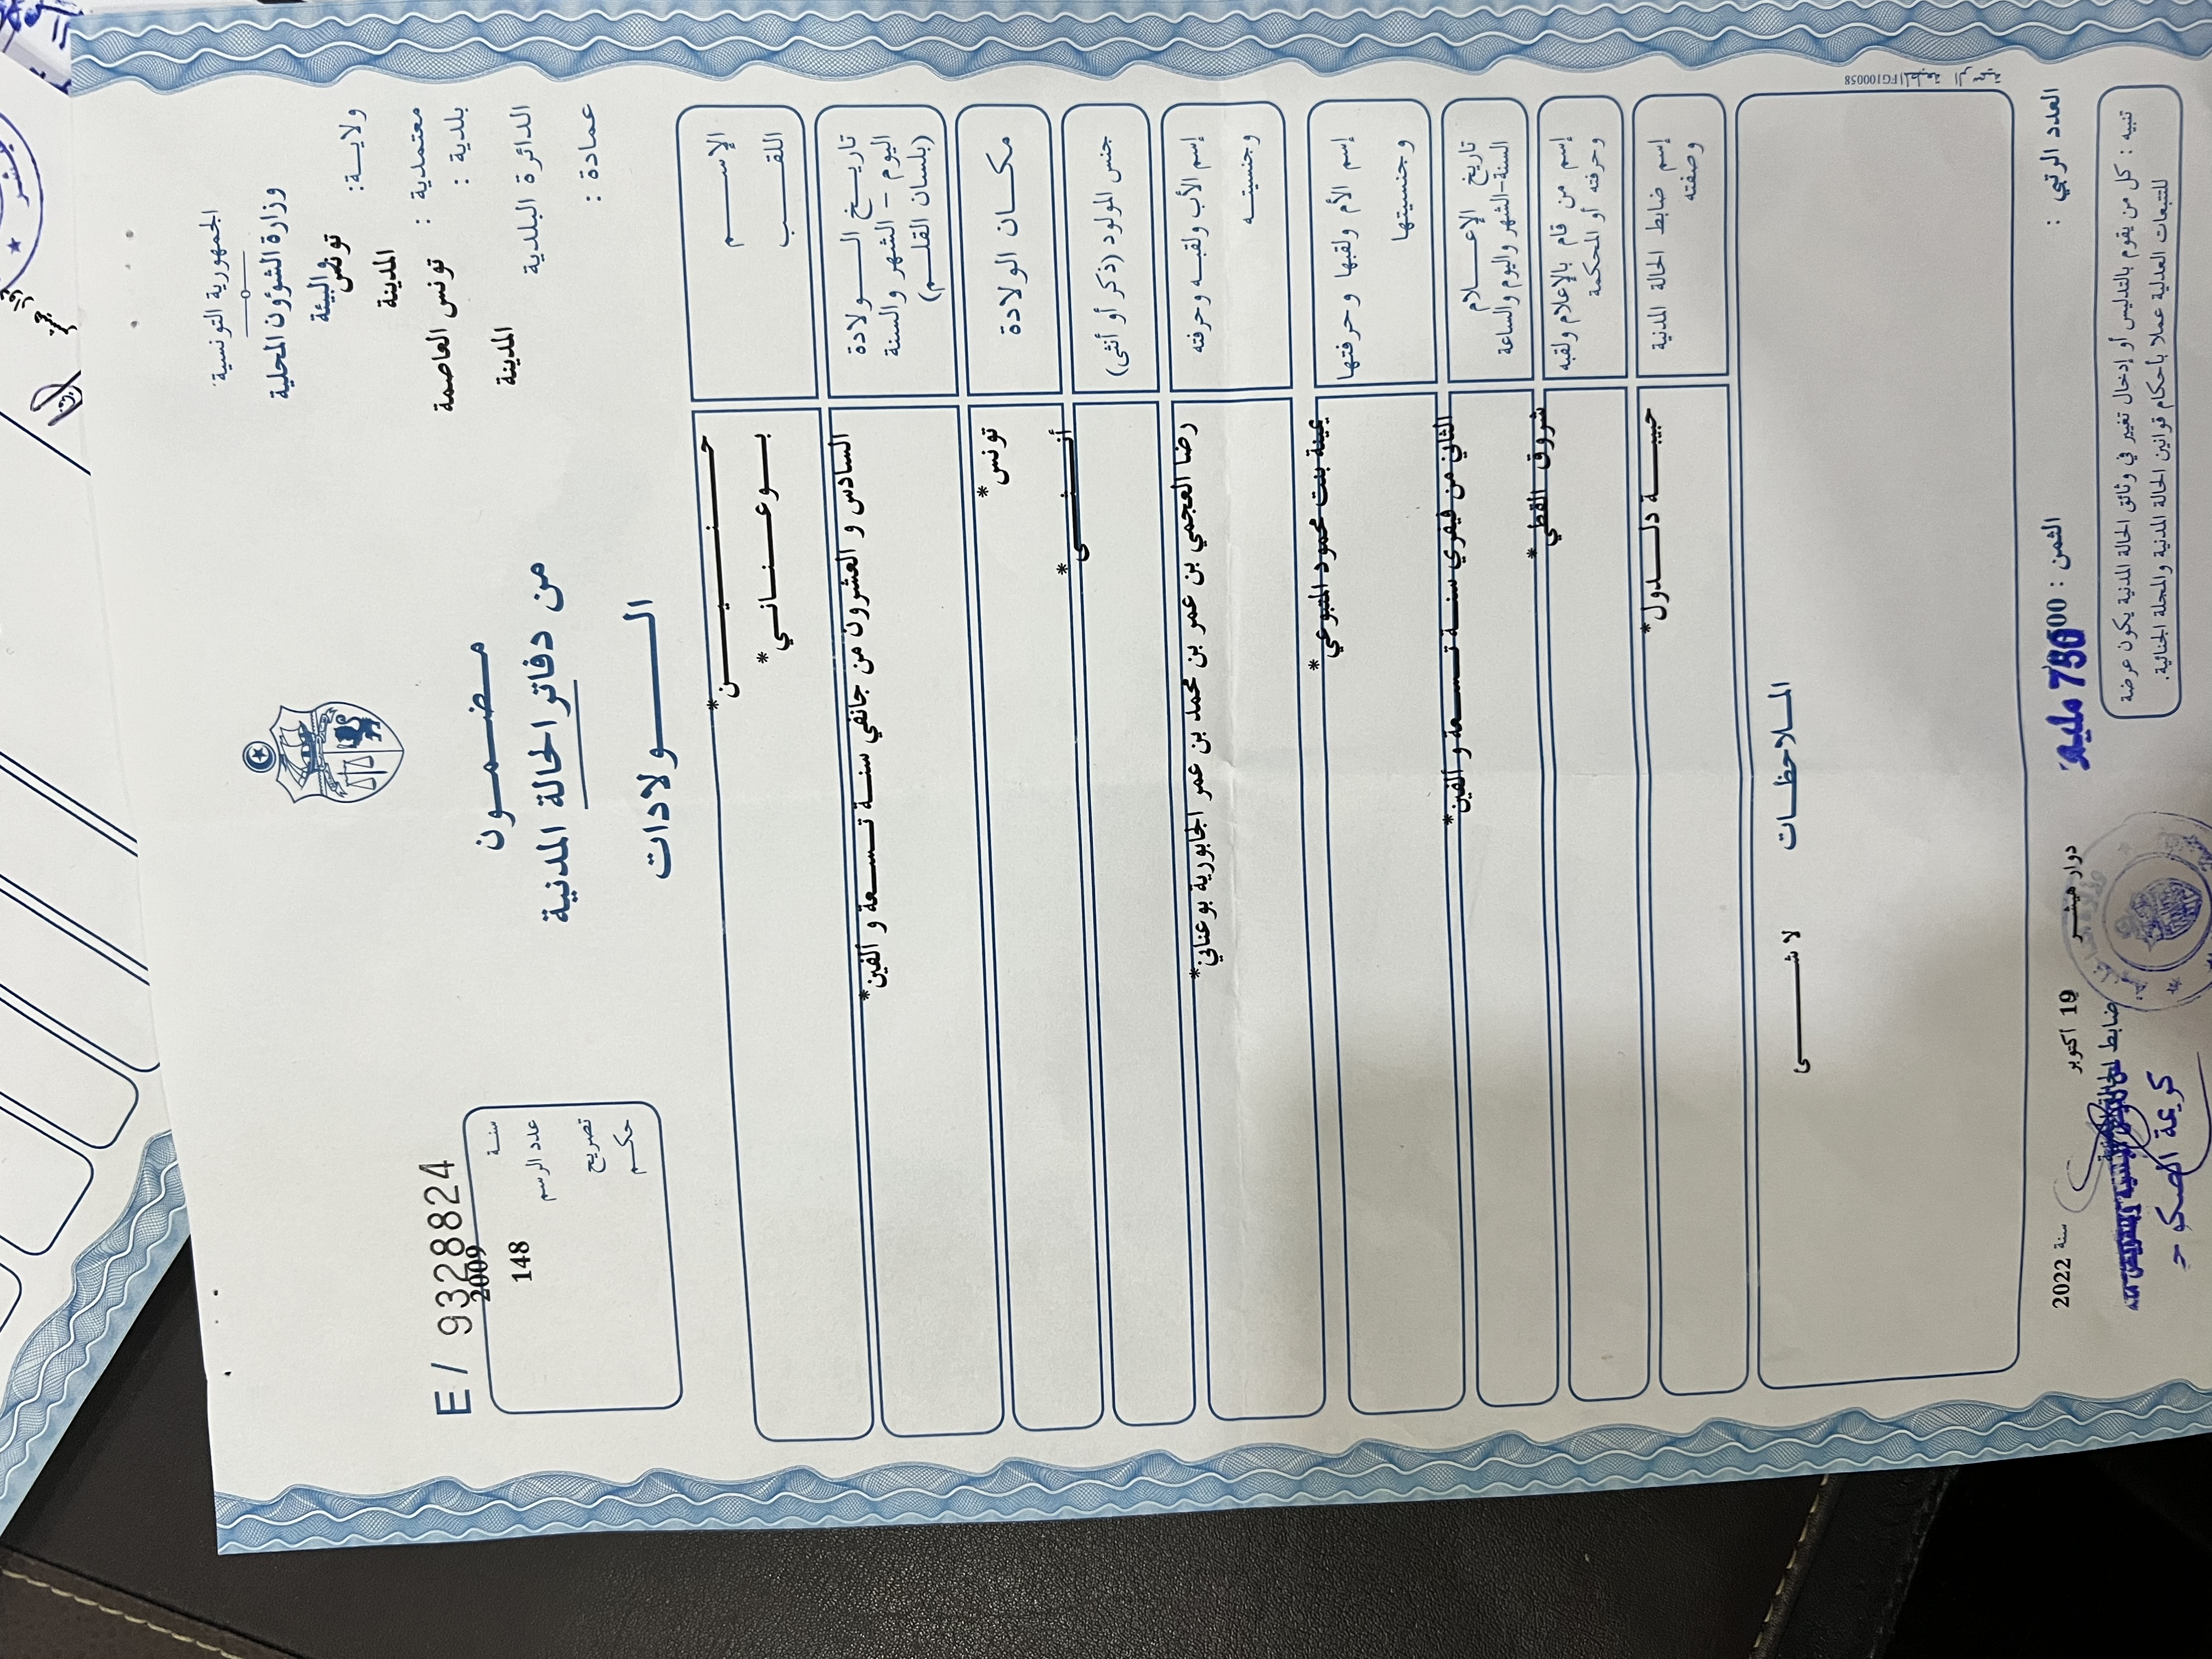 الجمهورية التونسية
وزارة الشؤون المحلية
والبيئة
ولاية: تونس
معتمدية : المدينة
بلدية : تونس العاصمة
الدائرة البلدية المدينة
عمادة :
مضمون
من دفاتر الحالة المدنية
الولادات
E / 9328824
سنة 2009
عدد الرسم 148
تصريح
حكم
الإسم حنين*
اللقب بوعناني*
تاريخ الولادة
اليوم - الشهر والسنة
(بلسان القلم)
السادس و العشرون من جانفي سنة تسعة و ألفين*
مكان الولادة تونس*
جنس المولود (ذكر أو أنثى) أنثى*
إسم الأب ولقبه وحرفته
وجنسيته
رضا العجمي بن عمر بن محمد بن عمر الجابورية بوعناني*
إسم الأم ولقبها وحرفتها
وجنسيتها
يمينة بنت محمود المتبوعي*
تاريخ الإعلام
السنة-الشهر واليوم والساعة
الثاني من فيفري سنة تسعة و ألفين*
إسم من قام بالإعلام ولقبه
وحرفته أو المحكمة
شروق القطي*
إسم ضابط الحالة المدنية
وصفته
حبيبة دلدول*
الملاحظات
لا شى
العدد الرتبي :
الثمن :
750 مليم
دوار هيشر 19 اكتوبر سنة 2022
ضابط الحالة المدنية
تنبيه : كل من يقوم بالتدليس أو إدخال تغيير في وثائق الحالة المدنية يكون عرضة
للتتبعات العدلية عملا بأحكام قوانين الحالة المدنية والمجلة الجنائية.
المطبعة الرسمية FG100058